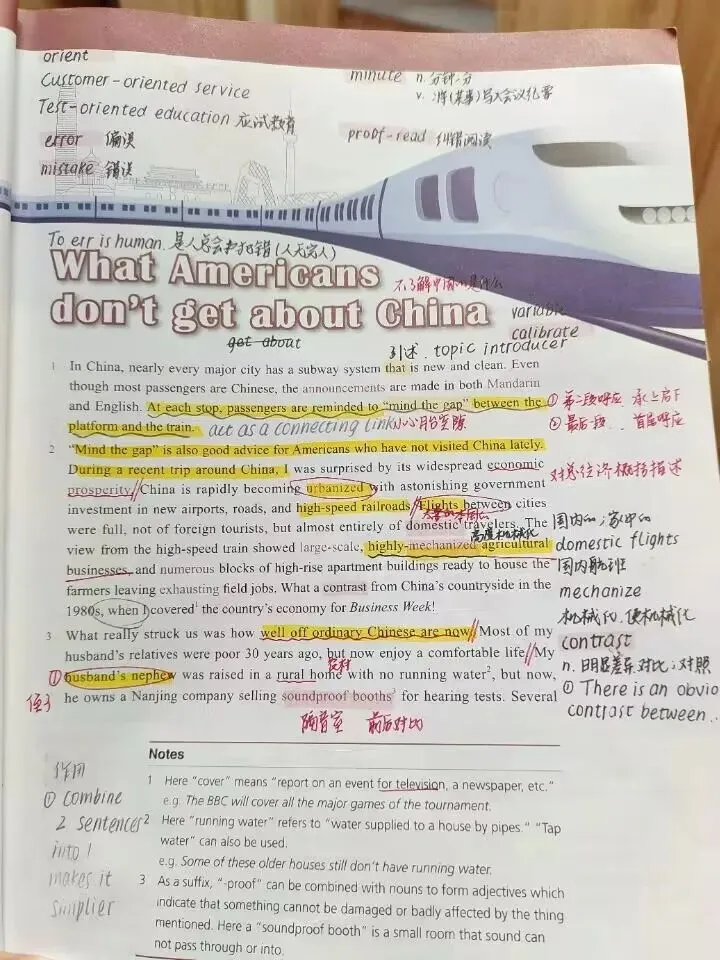 orient
Customer-oriented service
Test-oriented education 应试教育
error 偏误
mistake 错误
minute n. 分钟、分
v. 将(某事)写入会议纪要
proof-read 纠错阅读
To err is human. 是人总会犯错(人无完人)
What Americans
不了解中国的是什么
don't get about China
get about
variable
calibrate
引述. topic introducer
1 In China, nearly every major city has a subway system that is new and clean. Even
though most passengers are Chinese, the announcements are made in both Mandarin
and English. At each stop, passengers are reminded to "mind the gap" between the
platform and the train. act as a connecting link 小心月台空隙
① 第二段呼应 承上启下
② 最后一段 首尾呼应
2 "Mind the gap" is also good advice for Americans who have not visited China lately.
During a recent trip around China, I was surprised by its widespread economic
prosperity. China is rapidly becoming urbanized with astonishing government
investment in new airports, roads, and high-speed railroads. Flights between cities
were full, not of foreign tourists, but almost entirely of domestic travelers. The
高度机械化
view from the high-speed train showed large-scale, highly-mechanized agricultural
businesses, and numerous blocks of high-rise apartment buildings ready to house the
farmers leaving exhausting field jobs. What a contrast from China's countryside in the
1980s, when I covered1 the country's economy for Business Week!
对总经济概括描述
国内的;家中的
domestic flights
国内航班
mechanize
机械化,使机械化
contrast
n. 明显差异、对比;对照
① There is an obvio
contrast between..
3 What really struck us was how well off ordinary Chinese are now. Most of my
husband's relatives were poor 30 years ago, but now enjoy a comfortable life. My
农村
① husband's nephew was raised in a rural home with no running water2, but now,
侄子
he owns a Nanjing company selling soundproof booths3 for hearing tests. Several
隔音室 前后对比
作用
① combine
2 sentences
into 1
makes it
simplier
Notes
1 Here "cover" means "report on an event for television, a newspaper, etc."
e.g. The BBC will cover all the major games of the tournament.
2 Here "running water" refers to "water supplied to a house by pipes." "Tap
water" can also be used.
e.g. Some of these older houses still don't have running water.
3 As a suffix, "-proof" can be combined with nouns to form adjectives which
indicate that something cannot be damaged or badly affected by the thing
mentioned. Here a "soundproof booth" is a small room that sound can
not pass through or into.